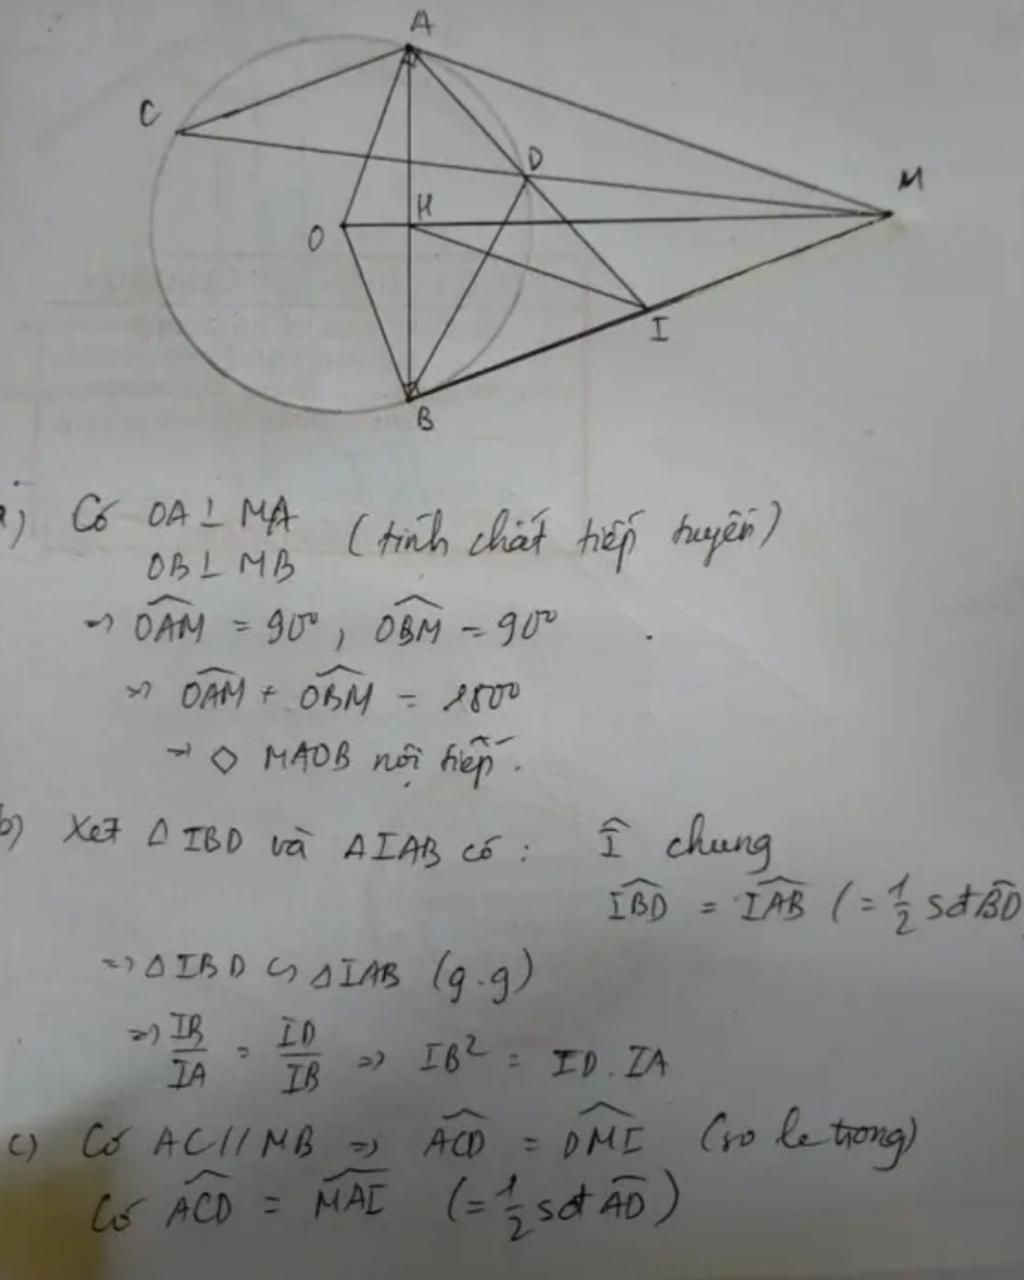 A
C
D
M
H
O
I
B
a) Có OA ⊥ MA
OB ⊥ MB
(tính chất tiếp tuyến)
=> \widehat{OAM} = 90°, \widehat{OBM} = 90°
=> \widehat{OAM} + \widehat{OBM} = 180°
=> ◇ MAOB nội tiếp.
b) Xét Δ IBD và Δ IAB có : \widehat{I} chung
\widehat{IBD} = \widehat{IAB} (= \frac{1}{2} sđ \widehat{BD}
=> Δ IBD ∽ Δ IAB (g.g)
=> \frac{IB}{IA} = \frac{ID}{IB} => IB² = ID . IA
c) Có AC // MB => \widehat{ACD} = \widehat{DMI} (so le trong)
Có \widehat{ACD} = \widehat{MAI} (= \frac{1}{2} sđ \widehat{AD})